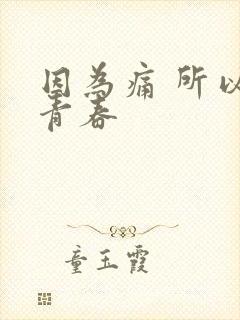 因為痛 所以
青春
童玉霞